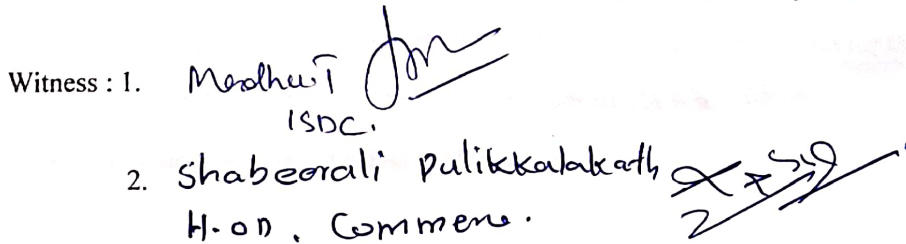 Witness : 1. Madhu.T
ISDC.
2. Shabeerali Pulikkalakath
H.OD, Commerce.